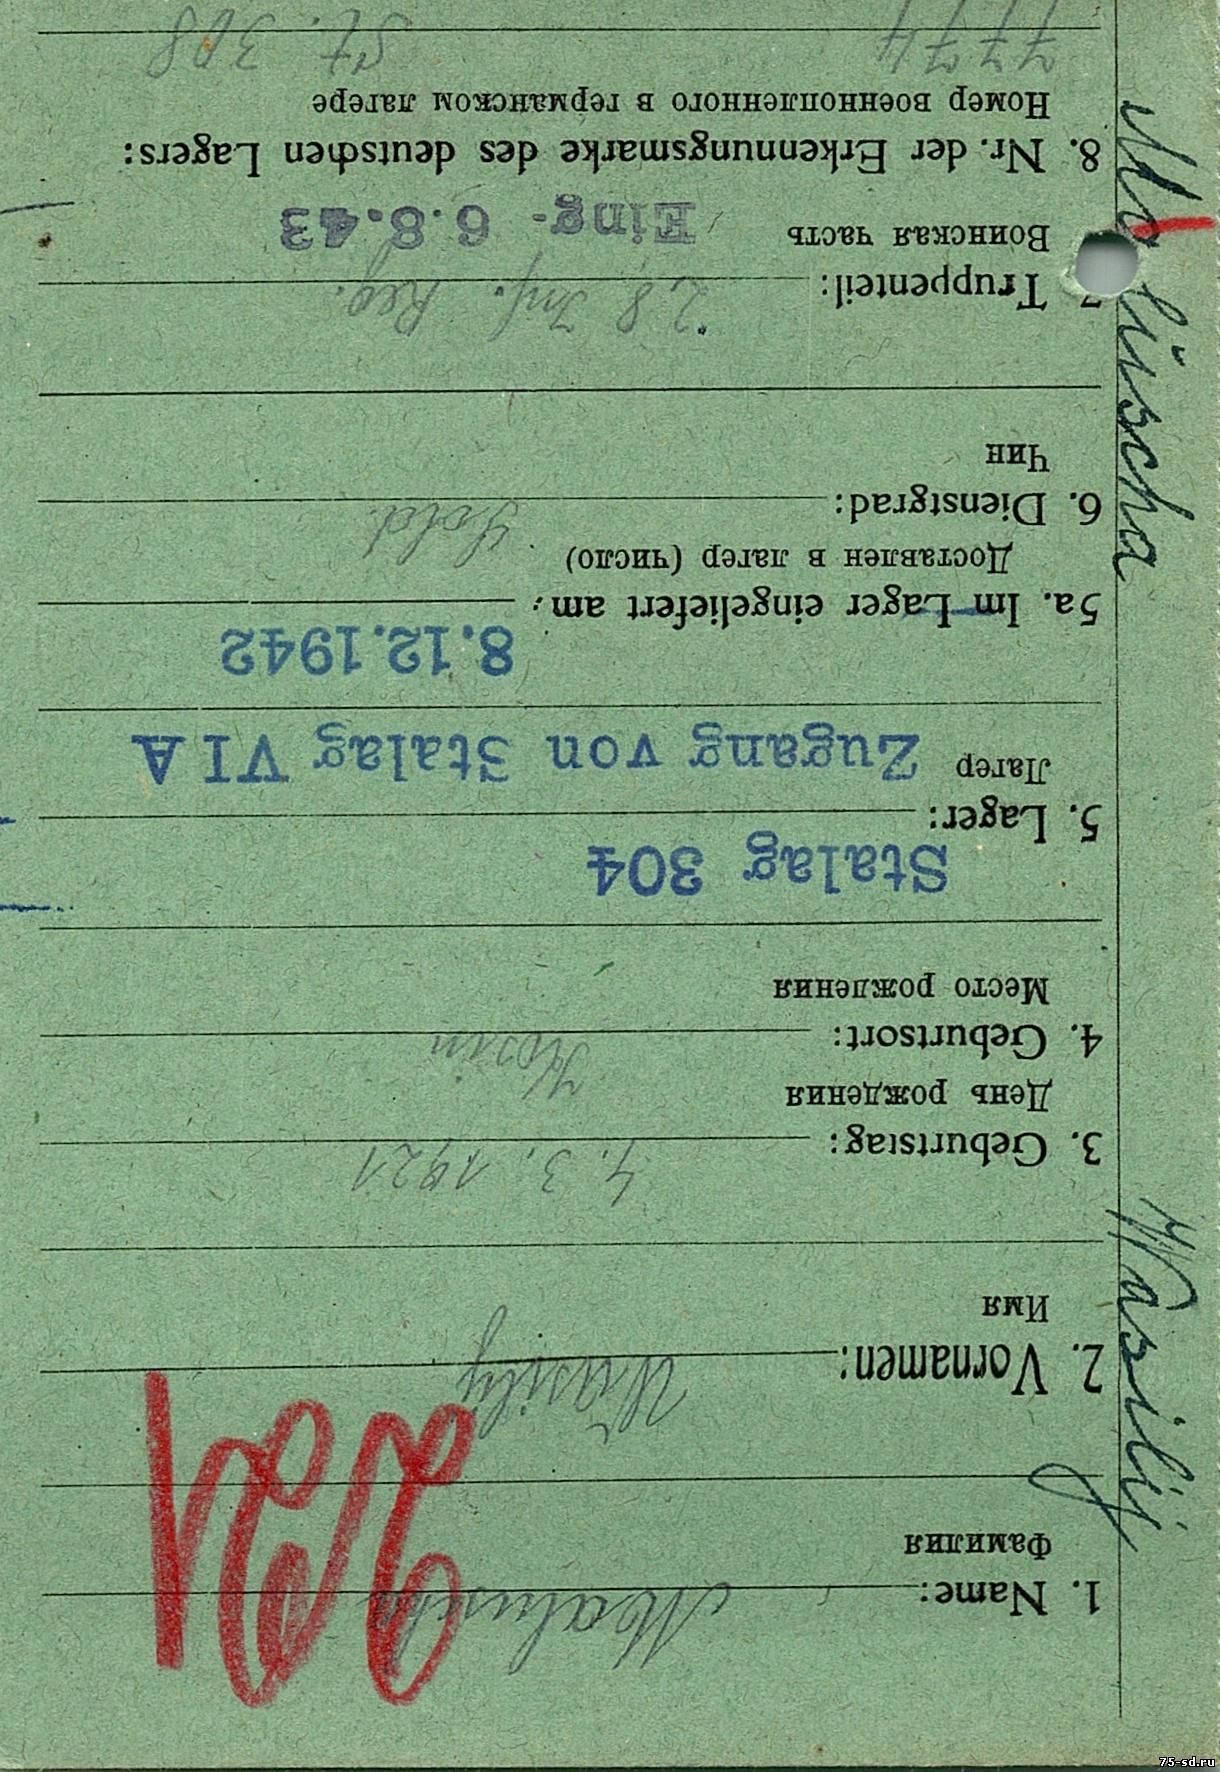 Wasilij Molüscha
1. Name: Malusch
Фамилия
2. Vornamen: Wasily
Имя
3. Geburtstag: 4. 3. 1921
День рождения
4. Geburtsort:
Место рождения
Stalag 304
5. Lager:
Лагер Zugang von Stalag VI A
8.12.1942
5a. Im Lager eingeliefert am:
Доставлен в лагер (число)
6. Dienstgrad: Sold.
Чин
7. Truppenteil: 28 Inf. Reg.
Воинская часть Eing. 6.8.43
8. Nr. der Erkennungsmarke des deutschen Lagers:
Номер военнопленного в германском лагере
7774 St. 308
75-sd.ru